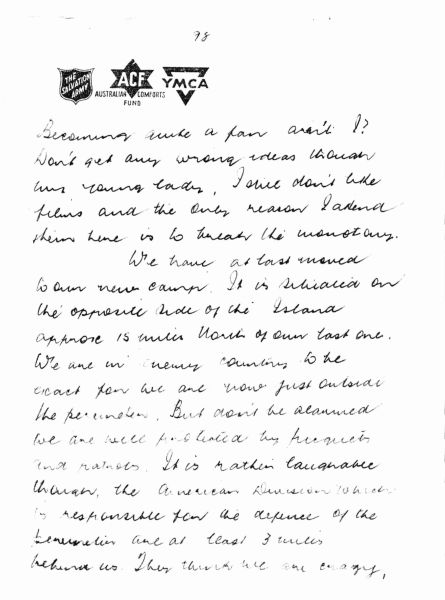 98
THE SALVATION ARMY
ACF
AUSTRALIAN COMFORTS FUND
YMCA
Becoming quite a fan aren't I?
Don't get any wrong ideas though
my young lady, I still don't like
films and the only reason I attend
them here is to break the monotony.
We have at last moved
to our new camp. It is situated on
the opposite side of the Island
approx 15 miles North of our last one.
We are in enemy country to be
exact for we are now just outside
the perimeter. But don't be alarmed
we are well protected by pickets
and patrols. It is rather laughable
though, the American Division which
is responsible for the defence of the
perimeter are at least 3 miles
behind us. They think we are crazy,